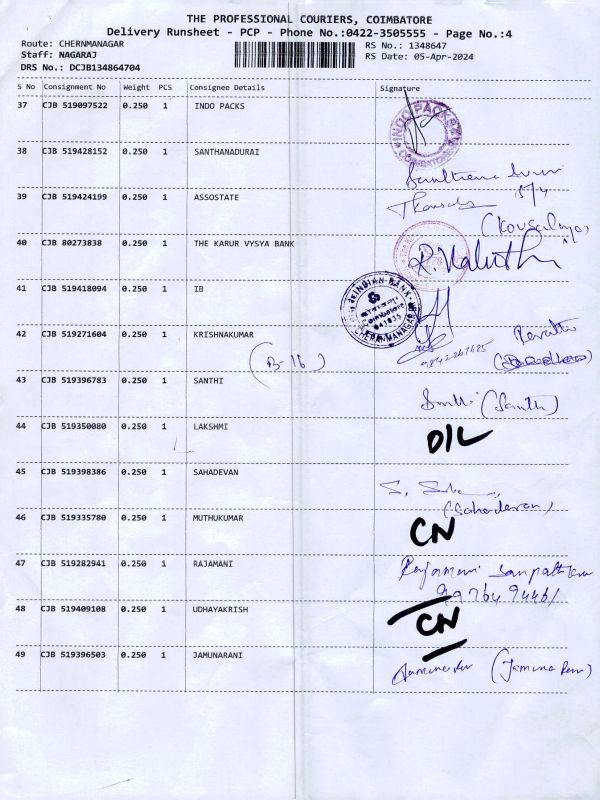 THE PROFESSIONAL COURIERS, COIMBATORE
Delivery Runsheet - PCP - Phone No.:0422-3505555 - Page No.:4
Route: CHERNMANAGAR
RS No.: 1348647
Staff: NAGARAJ
RS Date: 05-Apr-2024
DRS No.: DCJB134864704
S No Consignment No Weight PCS Consignee Details Signature
37 CJB 519097522 0.250 1 INDO PACKS
INDO PACKS
COIMBATORE
38 CJB 519428152 0.250 1 SANTHANADURAI
5/4
39 CJB 519424199 0.250 1 ASSOSTATE
(Kousalya)
40 CJB 80273838 0.250 1 THE KARUR VYSYA BANK
41 CJB 519418094 0.250 1 IB
INDIAN BANK
Coimbatore
641035
CHERANMANAGAR
42 CJB 519271604 0.250 1 KRISHNAKUMAR
(B-16)
Revathi
9842267685
43 CJB 519396783 0.250 1 SANTHI
(Santhi)
44 CJB 519350080 0.250 1 LAKSHMI
D/L
45 CJB 519398386 0.250 1 SAHADEVAN
(Sahadevan)
46 CJB 519335780 0.250 1 MUTHUKUMAR
CN
47 CJB 519282941 0.250 1 RAJAMANI
Rajamani
48 CJB 519409108 0.250 1 UDHAYAKRISH
CN
49 CJB 519396503 0.250 1 JAMUNARANI
(Jamuna Rani)